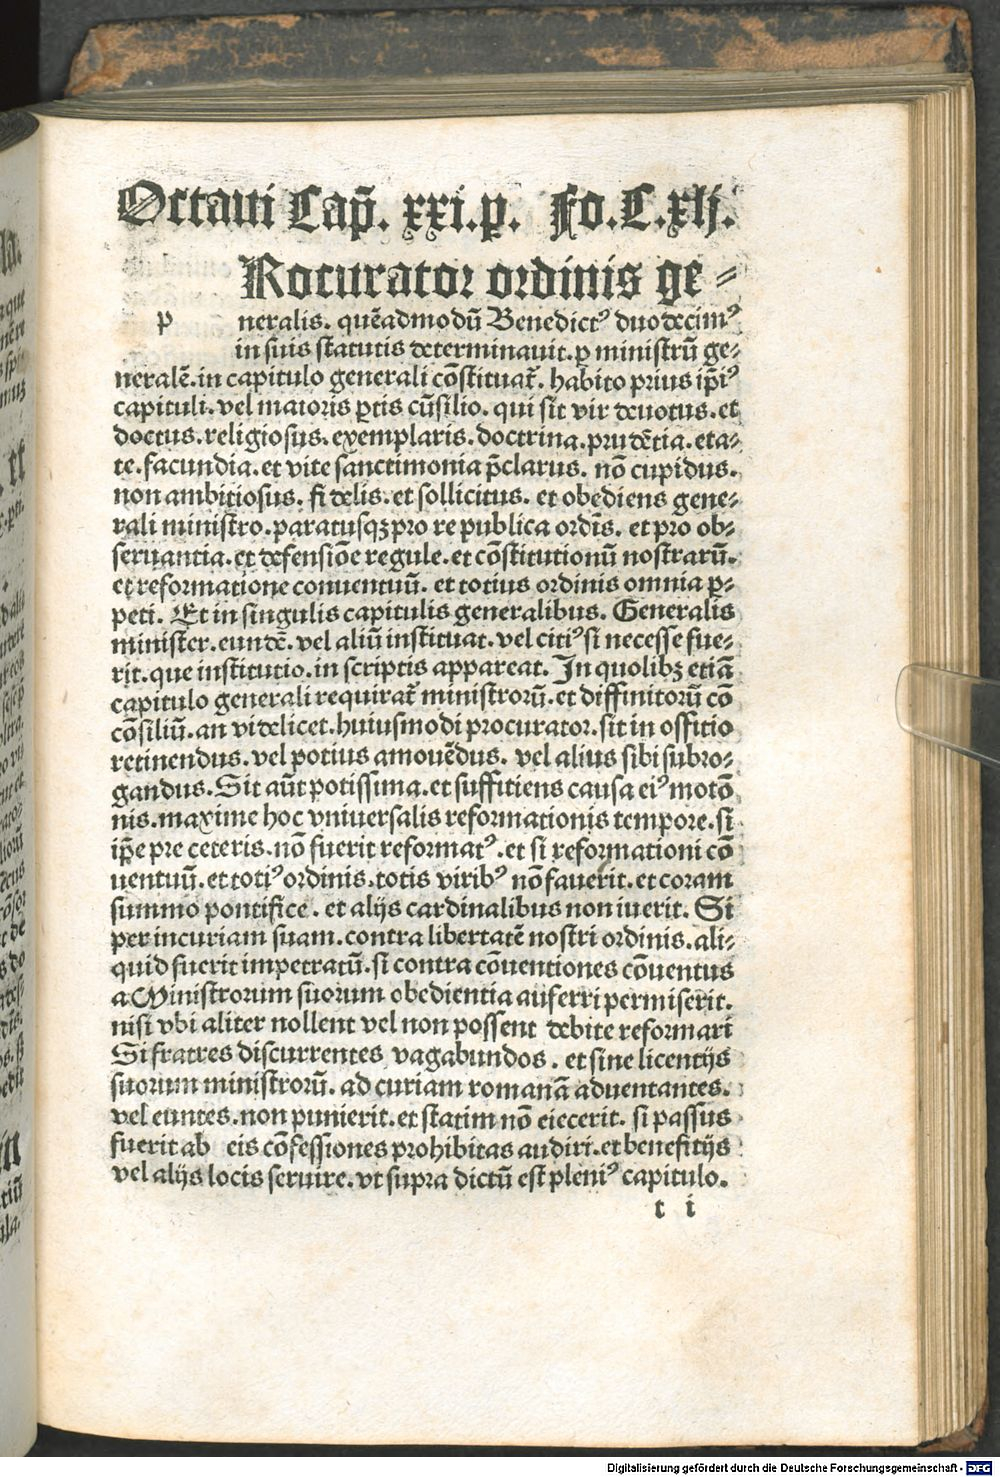 Octaui Cap̃. xxi.p. Fo.C.xlj.
Rocurator ordinis ge⸗
p neralis. quẽadmodũ Benedictꝰ duodecimꝰ
in suis statutis determinauit. ꝑ ministrũ ge⸗
neralẽ. in capitulo generali cõstituat̃. habito prius ip̃iꝰ
capituli. vel maioris ꝑtis cũsilio. qui sit vir deuotus. et
doctus. religiosus. exemplaris. doctrina. prudẽtia. eta⸗
te. facundia. et vite sanctimonia p̃clarus. nõ cupidus.
non ambitiosus. fidelis. et sollicitus. et obediens gene⸗
rali ministro. paratusqꝫ pro re publica ordĩs. et pro ob⸗
seruantia. et defensiõe regule. et cõstitutionũ nostrarũ.
et reformatione conuentuũ. et totius ordinis omnia ꝑ⸗
peti. Et in singulis capitulis generalibus. Generalis
minister. eundẽ. vel aliũ instituat. vel citiꝰ si necesse fue⸗
rit. que institutio. in scriptis appareat. In quolibꝫ etiã
capitulo generali requirat̃ ministrorũ. et diffinitorũ cõ
cõsiliũ. an videlicet. huiusmodi procurator. sit in offitio
retinendus. vel potius amouẽdus. vel alius sibi subro⸗
gandus. Sit aũt potissima. et suffitiens causa eiꝰ motõ
nis. maxime hoc vniuersalis reformationis tempore. si
ip̃e pre ceteris. nõ fuerit reformatꝰ. et si reformationi cõ
uentuũ. et totiꝰ ordinis. totis viribꝰ nõ fauerit. et coram
summo pontifice. et alijs cardinalibus non iuerit. Si
per incuriam suam. contra libertatẽ nostri ordinis. ali⸗
quid fuerit impetratũ. si contra cõuentiones cõuentus
a Ministrorum suorum obedientia auferri permiserit.
nisi vbi aliter nollent vel non possent debite reformari
Si fratres discurrentes vagabundos. et sine licentijs
suorum ministrorũ. ad curiam romanã aduentantes.
vel euntes. non punierit. et statim nõ eiecerit. si passus
fuerit ab eis cõfessiones prohibitas audiri. et benefitijs
vel alijs locis seruire. vt supra dictũ est pleniꝰ capitulo.
t i
Digitalisierung gefördert durch die Deutsche Forschungsgemeinschaft - DFG